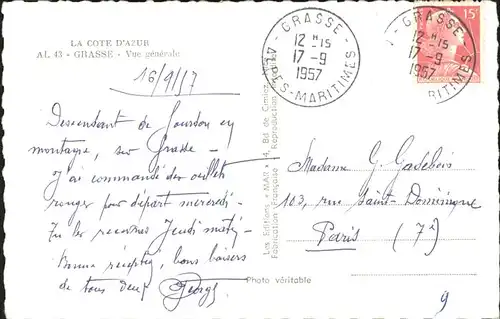 LA COTE D'AZUR
AL 43 - GRASSE - Vue générale
16/9/57
Descendant de Gourdon en
montagne, sur Grasse -
J'ai commandé des œillets
rouges pour départ mercredi -
Tu les recevras Jeudi matin -
Bonne réception, bons baisers
de tous deux Georges
GRASSE
12 H 15
17 - 9
1957
ALPES-MARITIMES
GRASSE
12 H 15
17 - 9
1957
RITIMES
15F
Les Editions "MAR"
Fabrication Française
Reproduction
Photo véritable
Madame G. Gadebois
103, rue Saint-Dominique
Paris (7e)
9